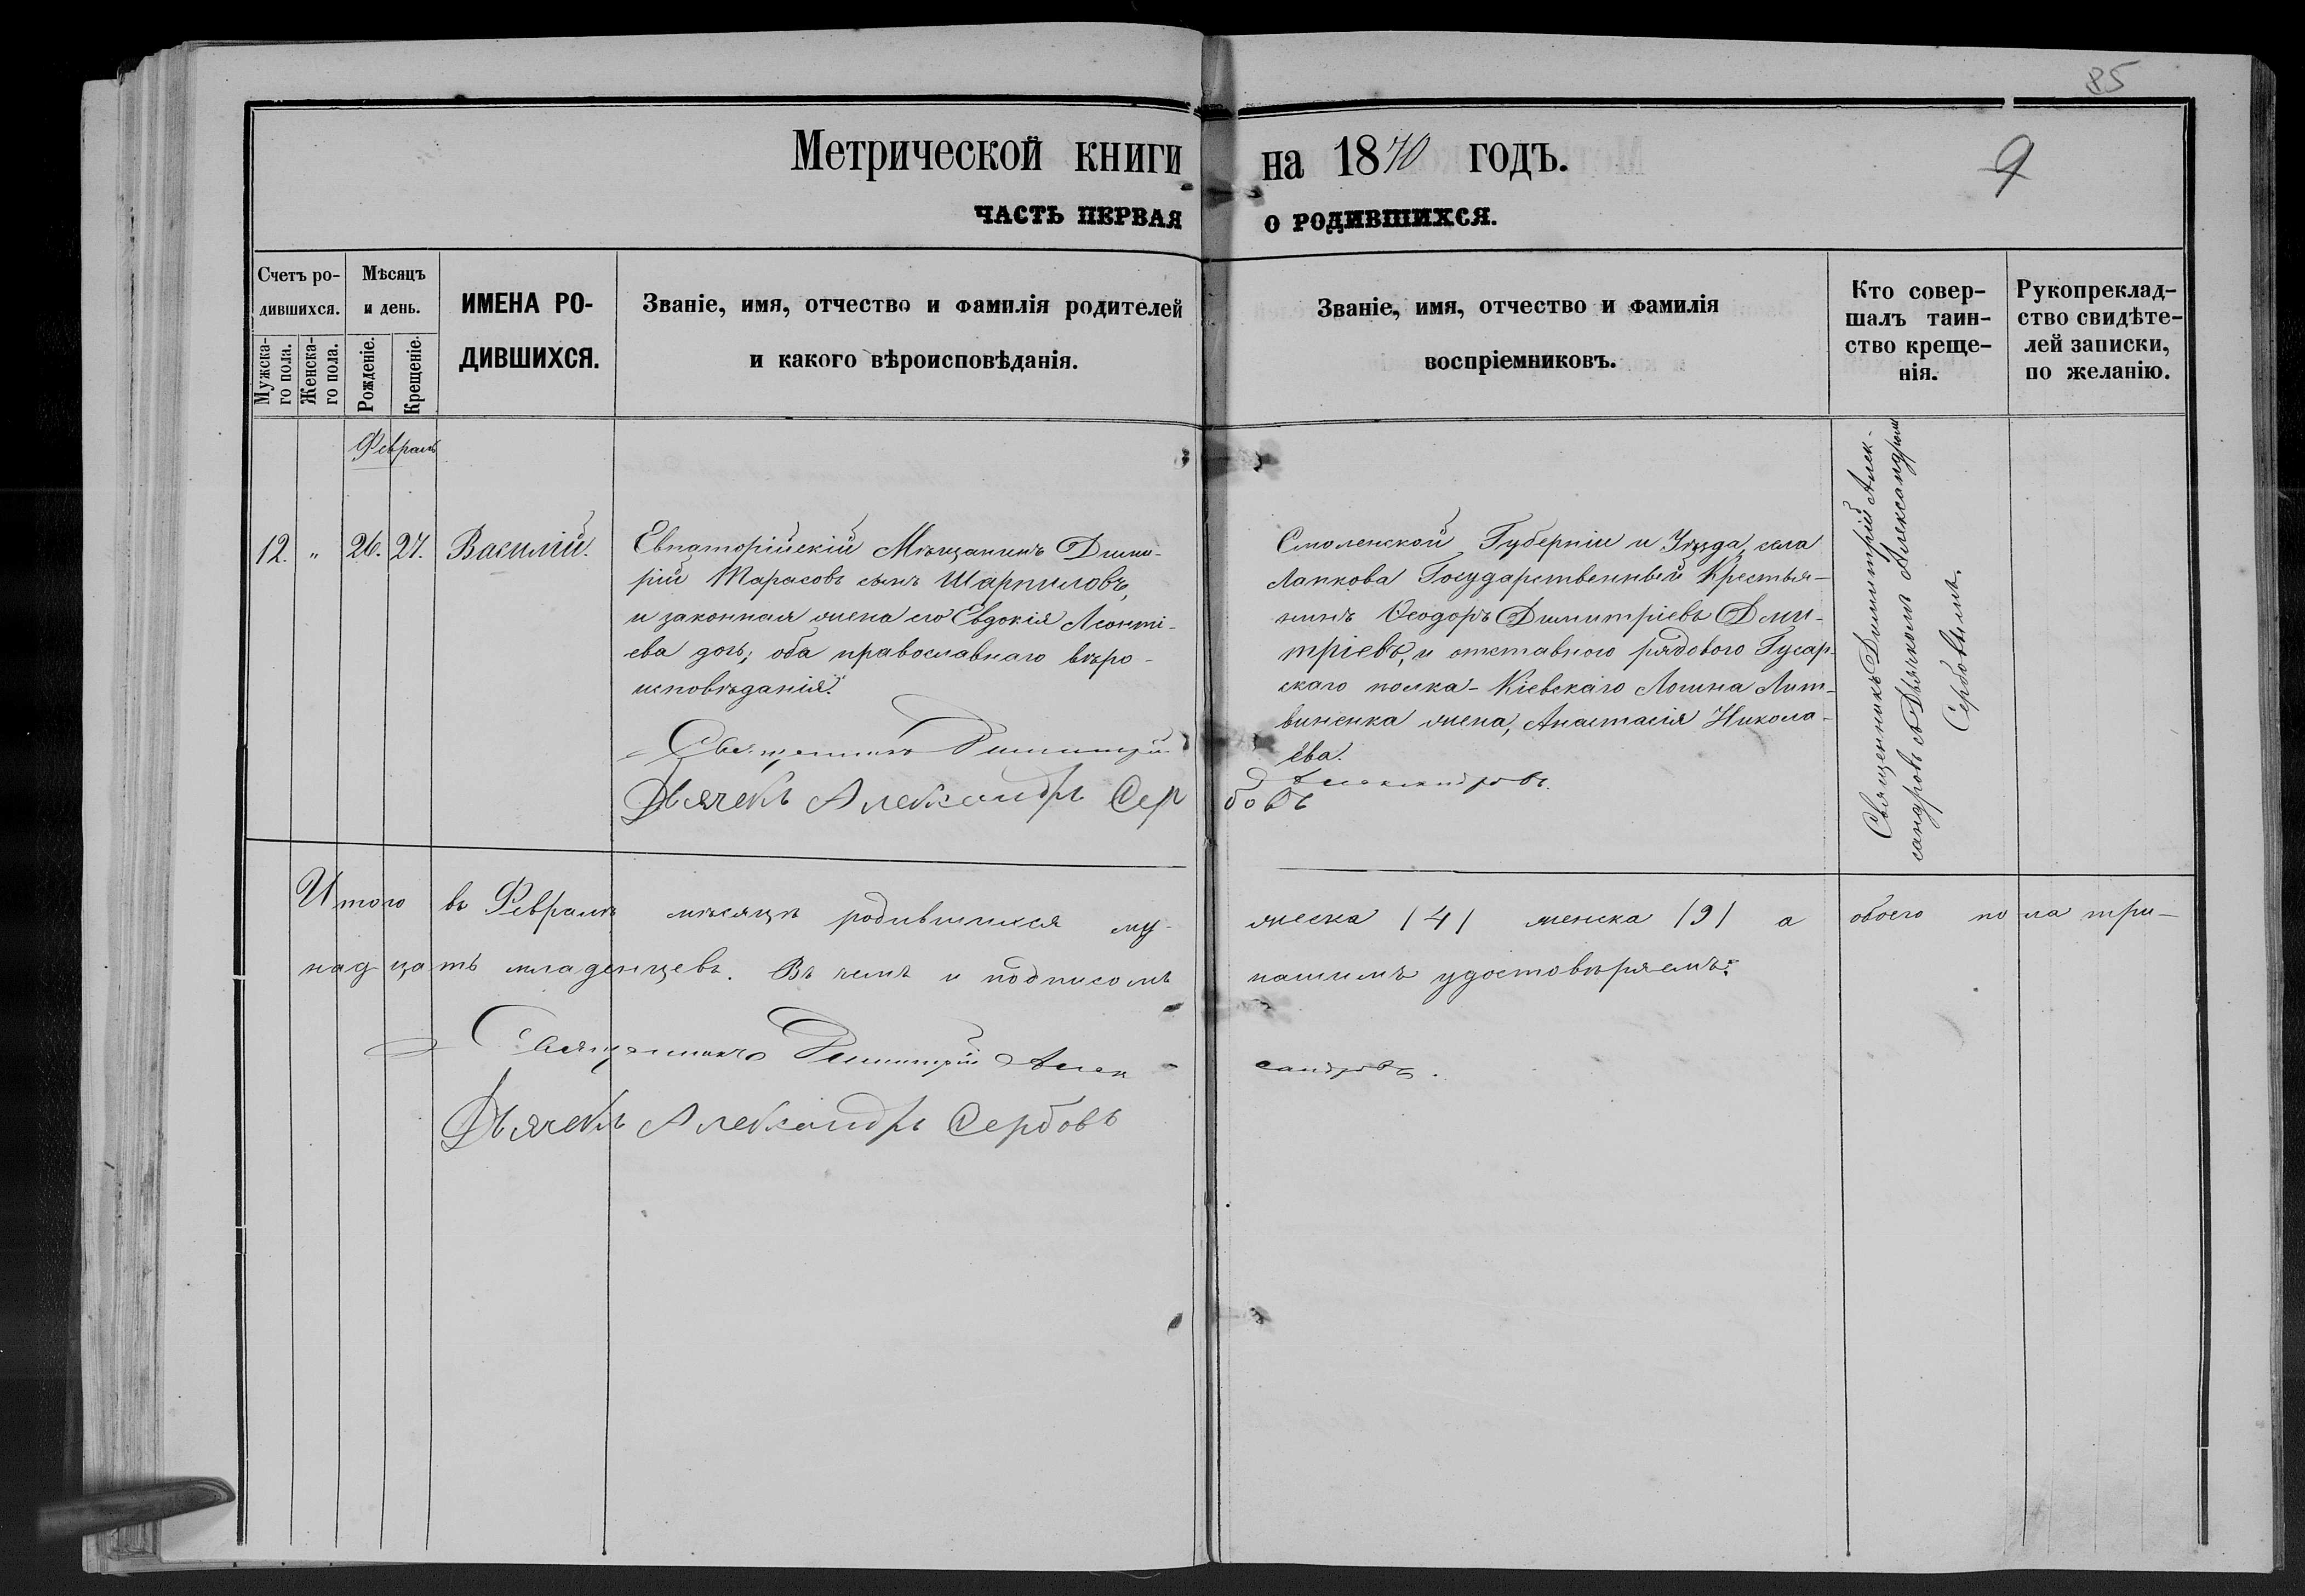 85
Метрической книги на 1870 годъ.
9
ЧАСТЬ ПЕРВАЯ О РОДИВШИХСЯ.
Счетъ ро-
дившихся.
Мужска-
го пола.
Женска-
го пола.
Мѣсяцъ
и день.
Рожденіе.
Крещеніе.
ИМЕНА РО-
ДИВШИХСЯ.
Званіе, имя, отчество и фамилія родителей
и какого вѣроисповѣданія.
Званіе, имя, отчество и фамилія
воспріемниковъ.
Кто совер-
шалъ таин-
ство креще-
нія.
Рукопреклад-
ство свидѣте-
лей записки,
по желанію.
Февраль
12. " 26. 27. Василій.
Евпаторійскій Мѣщанинъ Дими-
рій Тарасовъ сынъ Шарпиловъ,
и законная жена его Евдокія Леонті-
ева дочь; оба православнаго вѣро-
исповѣданія.
Смоленской Губерніи и Уѣзда, села
Лапкова Государственный Крестья-
нинъ Ѳеодоръ Димитріевъ Дми-
тріевъ, и отставного рядового Гусар-
скаго полка - Кіевскаго Логина Лит-
виненка жена, Анастасія Никола-
ева.
Священникъ Димитрій Алек-
сандровъ съ Дьячкомъ Александромъ
Сербовымъ.
Священникъ Димитрій Александровъ.
Дьячекъ Александръ Сербовъ
Итого въ Февралѣ мѣсяцѣ родившихся му-
жеска /4/ женска /9/ а обоего пола три-
надцать младенцевъ. Въ чемъ и подписомъ
нашимъ удостовѣряемъ:
Священникъ Димитрій Алек-
сандровъ.
Дьячекъ Александръ Сербовъ